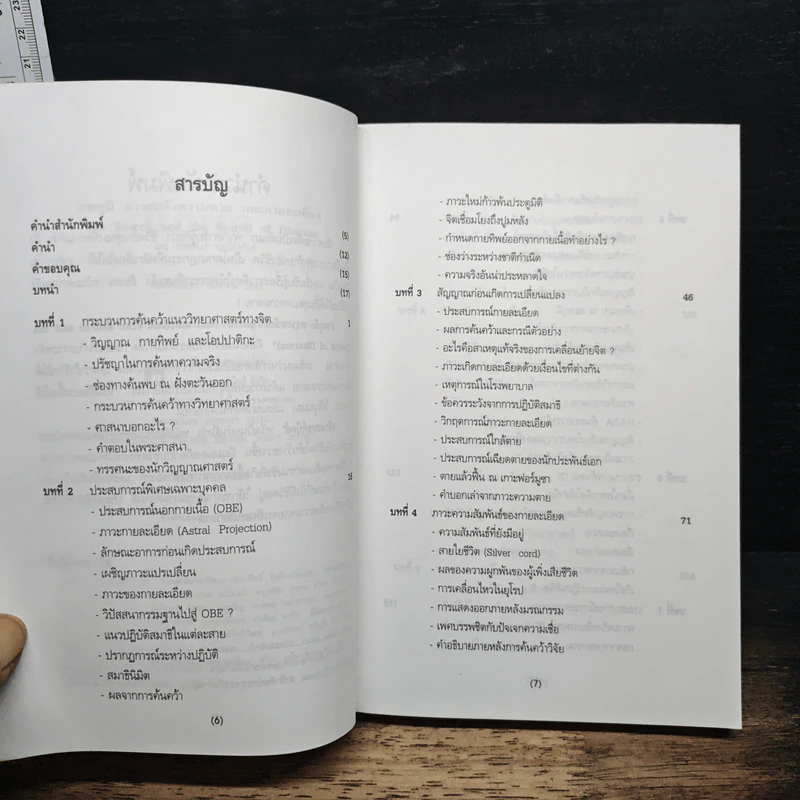 23
22
21
สารบัญ
คำนำสำนักพิมพ์ (5)
คำนำ (12)
คำขอบคุณ (15)
บทนำ (17)
บทที่ 1 กระบวนการค้นคว้าแนววิทยาศาสตร์ทางจิต 1
- วิญญาณ กายทิพย์ และโอปปาติกะ
- ปรัชญาในการค้นหาความจริง
- ช่องทางค้นพบ ณ ฝั่งตะวันออก
- กระบวนการค้นคว้าทางวิทยาศาสตร์
- ศาสนาบอกอะไร ?
- คำตอบในพระศาสนา
- ทรรศนะของนักวิญญาณศาสตร์
บทที่ 2 ประสบการณ์พิเศษเฉพาะบุคคล 16
- ประสบการณ์นอกกายเนื้อ (OBE)
- ภาวะกายละเอียด (Astral Projection)
- ลักษณะอาการก่อนเกิดประสบการณ์
- เผชิญภาวะแปรเปลี่ยน
- ภาวะของกายละเอียด
- วิปัสสนากรรมฐานไปสู่ OBE ?
- แนวปฏิบัติสมาธิในแต่ละสาย
- ปรากฏการณ์ระหว่างปฏิบัติ
- สมาธินิมิต
- ผลจากการค้นคว้า
(6)
- ภาวะใหม่ก้าวพ้นประตูมิติ
- จิตเชื่อมโยงถึงปูมหลัง
- กำหนดกายทิพย์ออกจากกายเนื้อทำอย่างไร ?
- ช่องว่างระหว่างชาติกำเนิด
- ความจริงอันน่าประหลาดใจ
บทที่ 3 สัญญาณก่อนเกิดการเปลี่ยนแปลง 46
- ประสบการณ์กายละเอียด
- ผลการค้นคว้าและกรณีตัวอย่าง
- อะไรคือสาเหตุแท้จริงของการเคลื่อนย้ายจิต ?
- ภาวะเกิดกายละเอียดด้วยเงื่อนไขที่ต่างกัน
- เหตุการณ์ในโรงพยาบาล
- ข้อควรระวังจากการปฏิบัติสมาธิ
- วิกฤตการณ์ภาวะกายละเอียด
- ประสบการณ์ใกล้ตาย
- ประสบการณ์เฉียดตายของนักประพันธ์เอก
- ตายแล้วฟื้น ณ เกาะฟอร์มูซา
- คำบอกเล่าจากภาวะความตาย
บทที่ 4 ภาวะความสัมพันธ์ของกายละเอียด 71
- ความสัมพันธ์ที่ยังมีอยู่
- สายใยชีวิต (Silver cord)
- ผลของความผูกพันของผู้เพิ่งเสียชีวิต
- การเคลื่อนไหวในยุโรป
- การแสดงออกภายหลังมรณกรรม
- เพศบรรพชิตกับปัจเจกความเชื่อ
- คำอธิบายภายหลังการค้นคว้าวิจัย
(7)